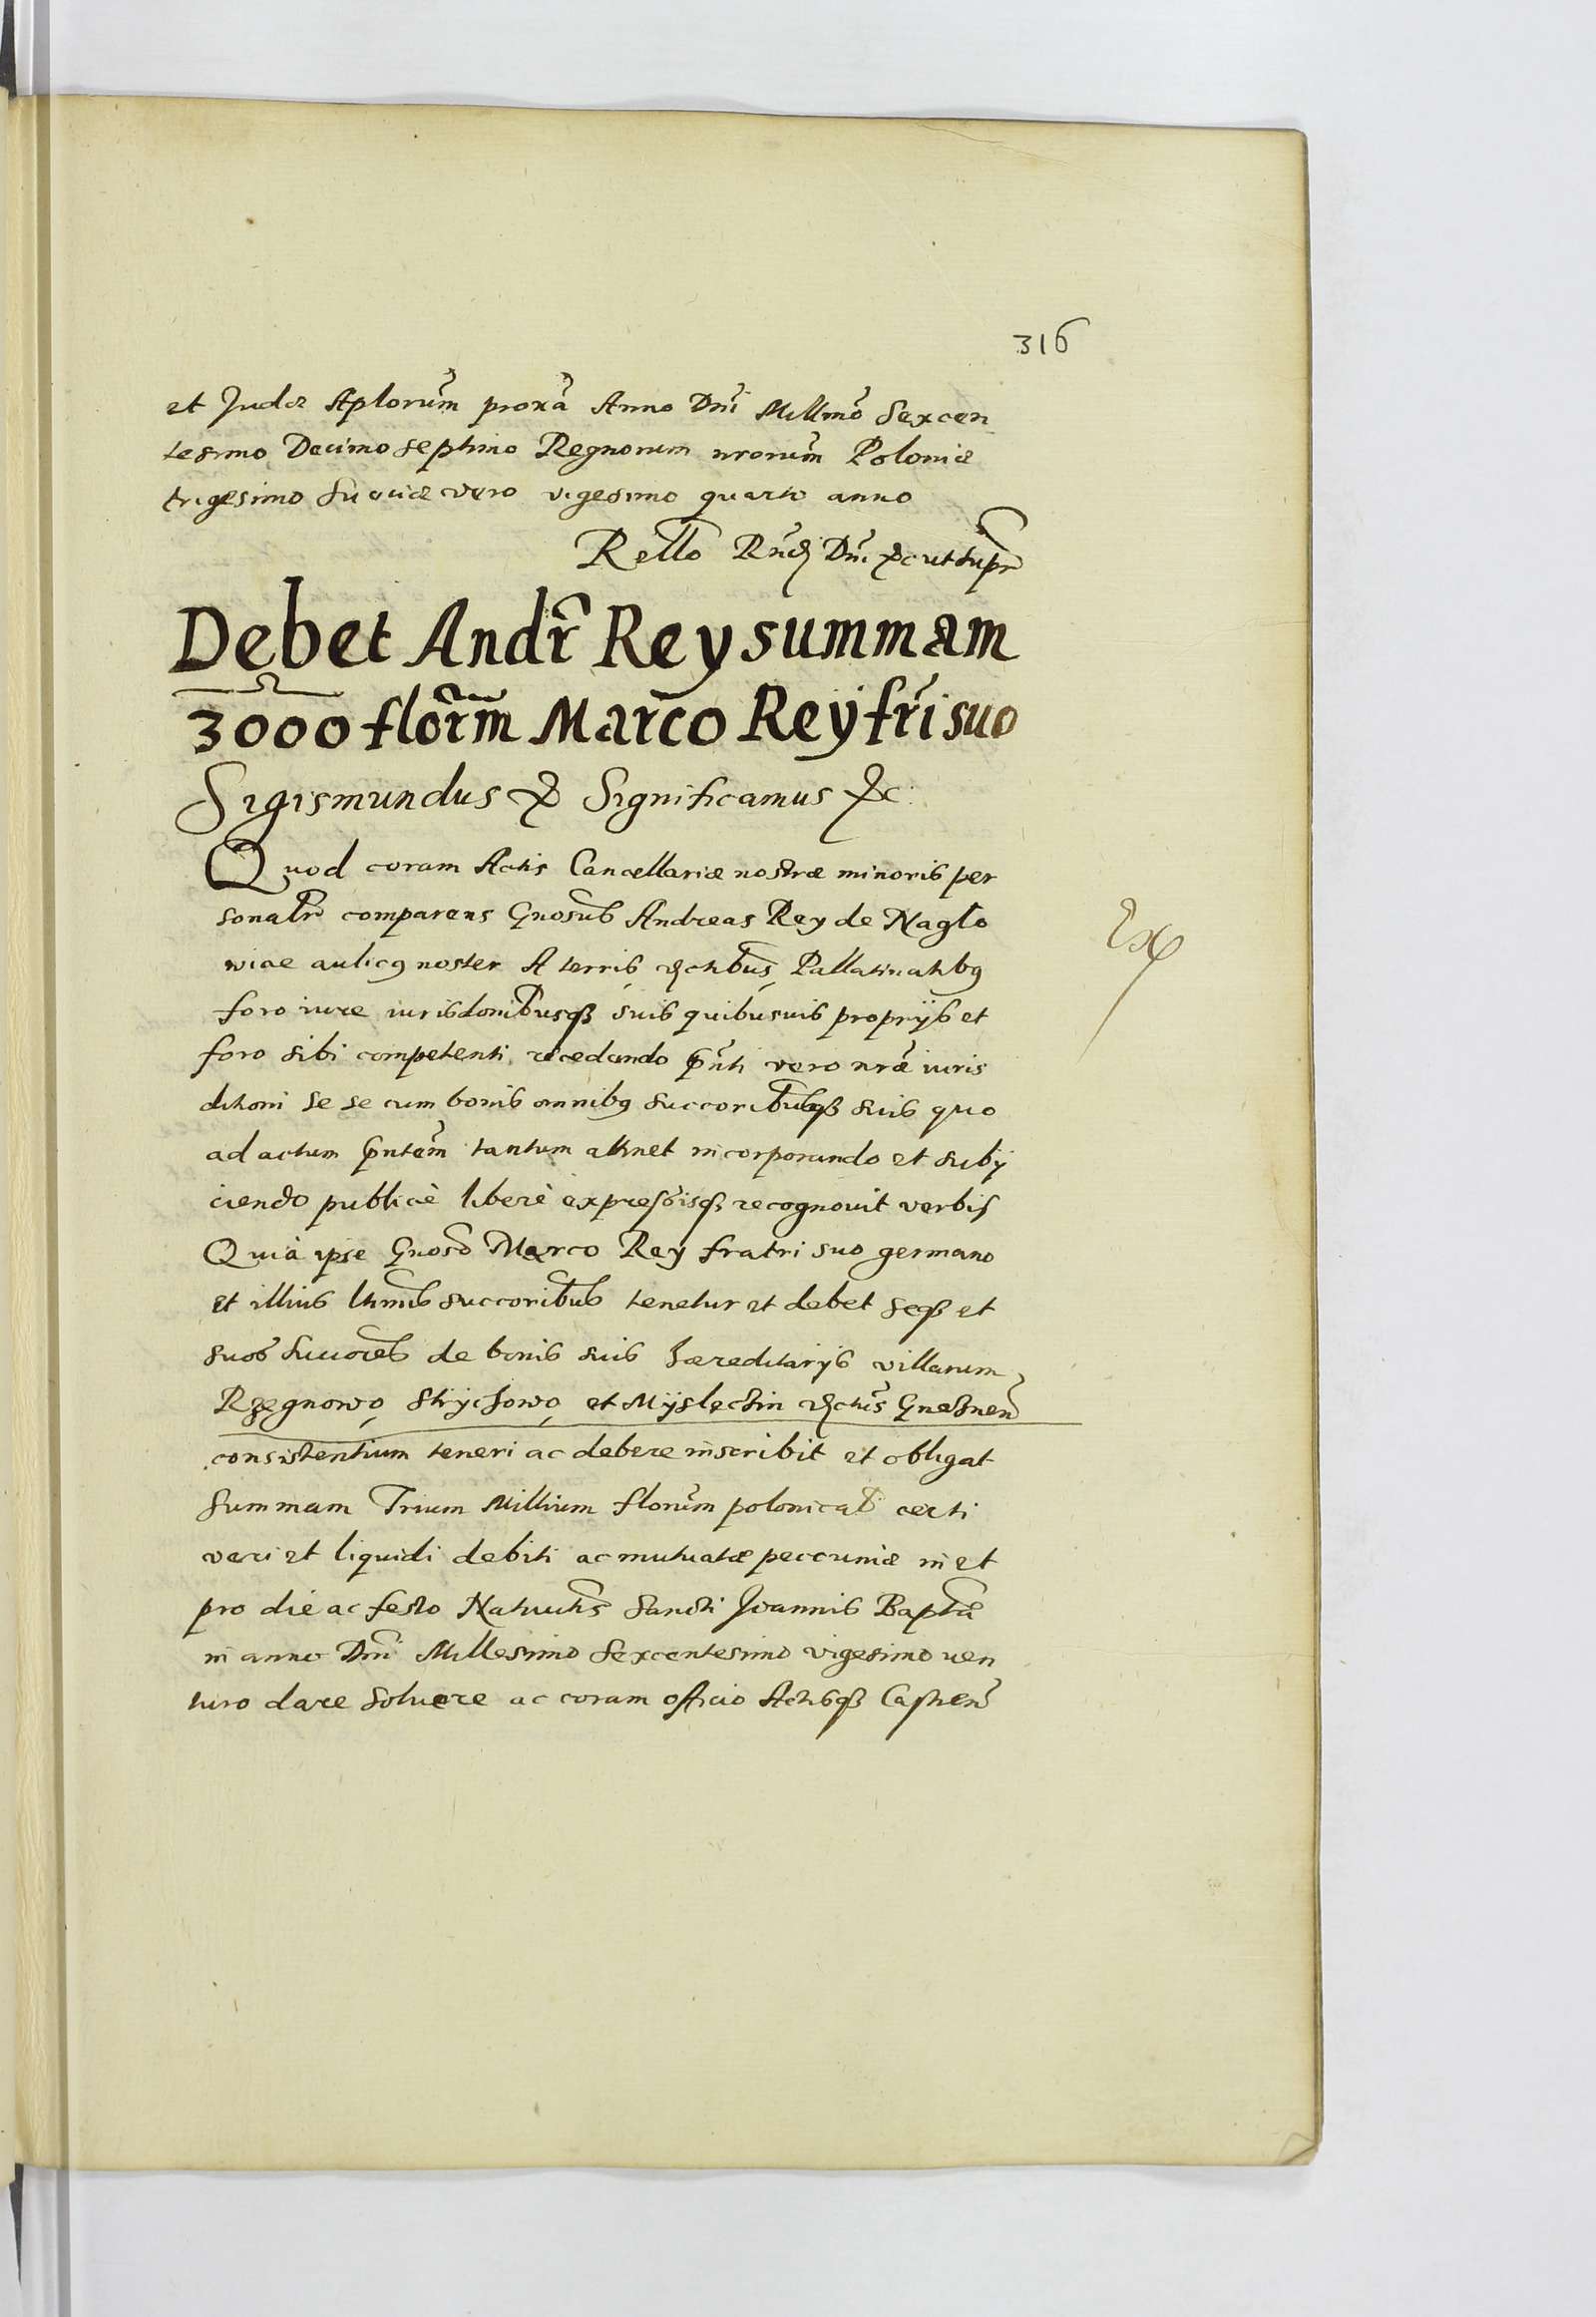 316
et Judæ Aplorum proxa Anno Dni Millmo Sexcen
tesimo Decimo septimo Regnorum nrorum Poloniæ
trigesimo Sueciæ vero vigesimo quarto anno
Rello Rndi Dni &c ut supr
Debet Andr Rey summam
3000 florm Marco Reÿ fri suo
Sigismundus & Significamus &c:
Quod coram Actis Cancellariæ nostræ minoris per
sonalr comparens Gnosus Andreas Rey de Naglo
wice aulicq noster A terris dictibus Pallatinatibq
foro iure iurisdonibusqß suis quibusuis proprÿs et
foro sibi competenti recedendo pnti vero nræ iuris
ditioni se se cum bonis omnibq succoribusqß suis quo
ad actum pntem tantum attinet incorporando et subÿ
ciendo publicè liberè expressisqß recognouit verbis
Quià ipse Gnoso Marco Rey fratri suo germano
et illius ltimis succoribus tenetur et debet seqß et
suos succores de bonis suis hæreditarÿs villarum
Rzegnowo, Strÿchowo, et Mÿslęcin dictus Gnesnen
consistentium teneri ac debere inscribit et obligat
summam Trium Millium florum polonical certi
veri et liquidi debiti ac mutuatæ peccuniæ in et
pro die ac festo Natiuitis Sancti Joannis Baptæ
in anno Dni Millesimo Sexcentesimo vigesimo ven
turo dare soluere ac coram officio Actisqß Castren